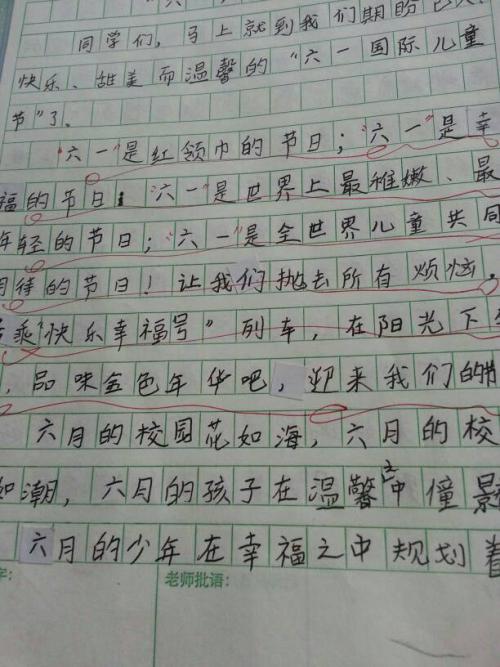 "六一
同学们，马上就到我们期盼已久
快乐、甜美而温馨的"六一国际儿童
节"了、
"六一"是红领巾的节日；"六一"是幸
福的节日；"六一"是世界上最稚嫩、最
年轻的节日；"六一"是全世界儿童共同
期待的节日！让我们抛去所有烦恼，
乘"快乐幸福号"列车，在阳光下
，品味金色年华吧，迎来我们的
六月的校园花如海，六月的校
如潮，六月的孩子在温馨之中憧憬
六月的少年在幸福之中规划着
字：
老师批语：